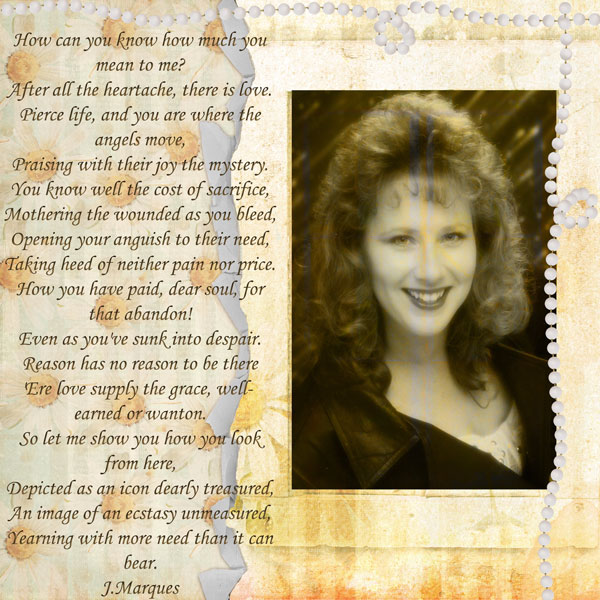 How can you know how much you
mean to me?
After all the heartache, there is love.
Pierce life, and you are where the
angels move,
Praising with their joy the mystery.
You know well the cost of sacrifice,
Mothering the wounded as you bleed,
Opening your anguish to their need,
Taking heed of neither pain nor price.
How you have paid, dear soul, for
that abandon!
Even as you've sunk into despair.
Reason has no reason to be there
Ere love supply the grace, well-
earned or wanton.
So let me show you how you look
from here,
Depicted as an icon dearly treasured,
An image of an ecstasy unmeasured,
Yearning with more need than it can
bear.
J.Marques